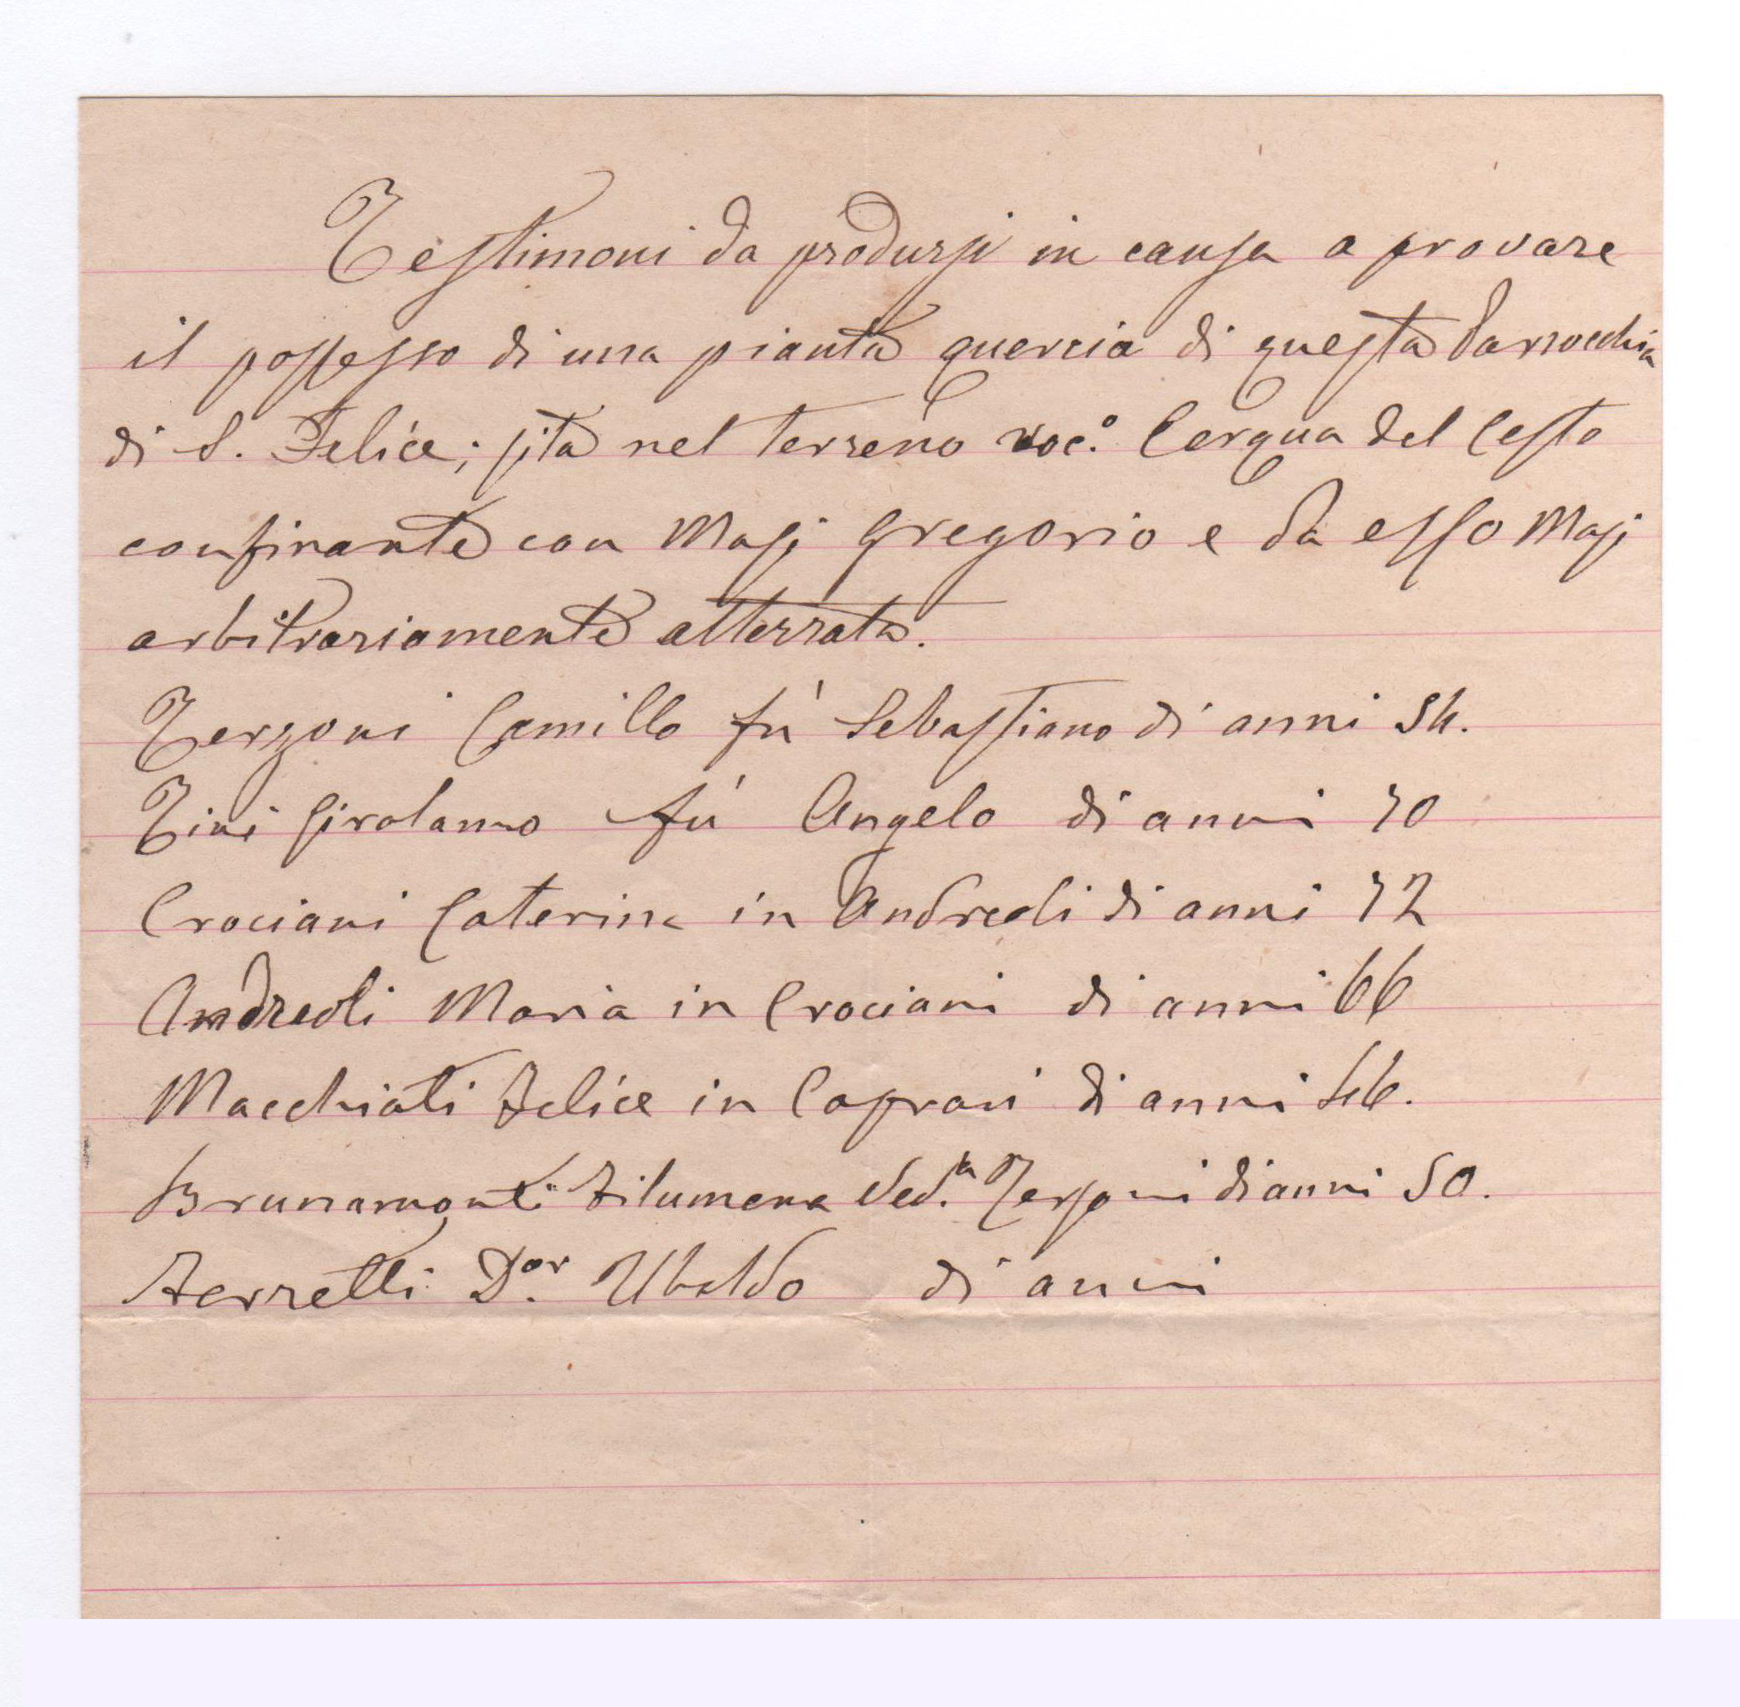 Testimoni da prodursi in causa a provare
il possesso di una pianta quercia di questa Parrocchia
di S. Felice; sita nel terreno voc.° Cerqua del Cesto
confinante con Masi Gregorio e da esso Masi
arbitrariamente atterrata.
Terzoni Camillo fù Sebastiano di anni 54.
Tini Girolamo fù Angelo di anni 70
Crociani Caterina in Andreoli di anni 72
Andreoli Maria in Crociani di anni 66
Macchiati Felice in Caprari di anni
Brunamonti Filumena Ved.a Terzoni di anni 50.
Ferretti D.or Ubaldo di anni